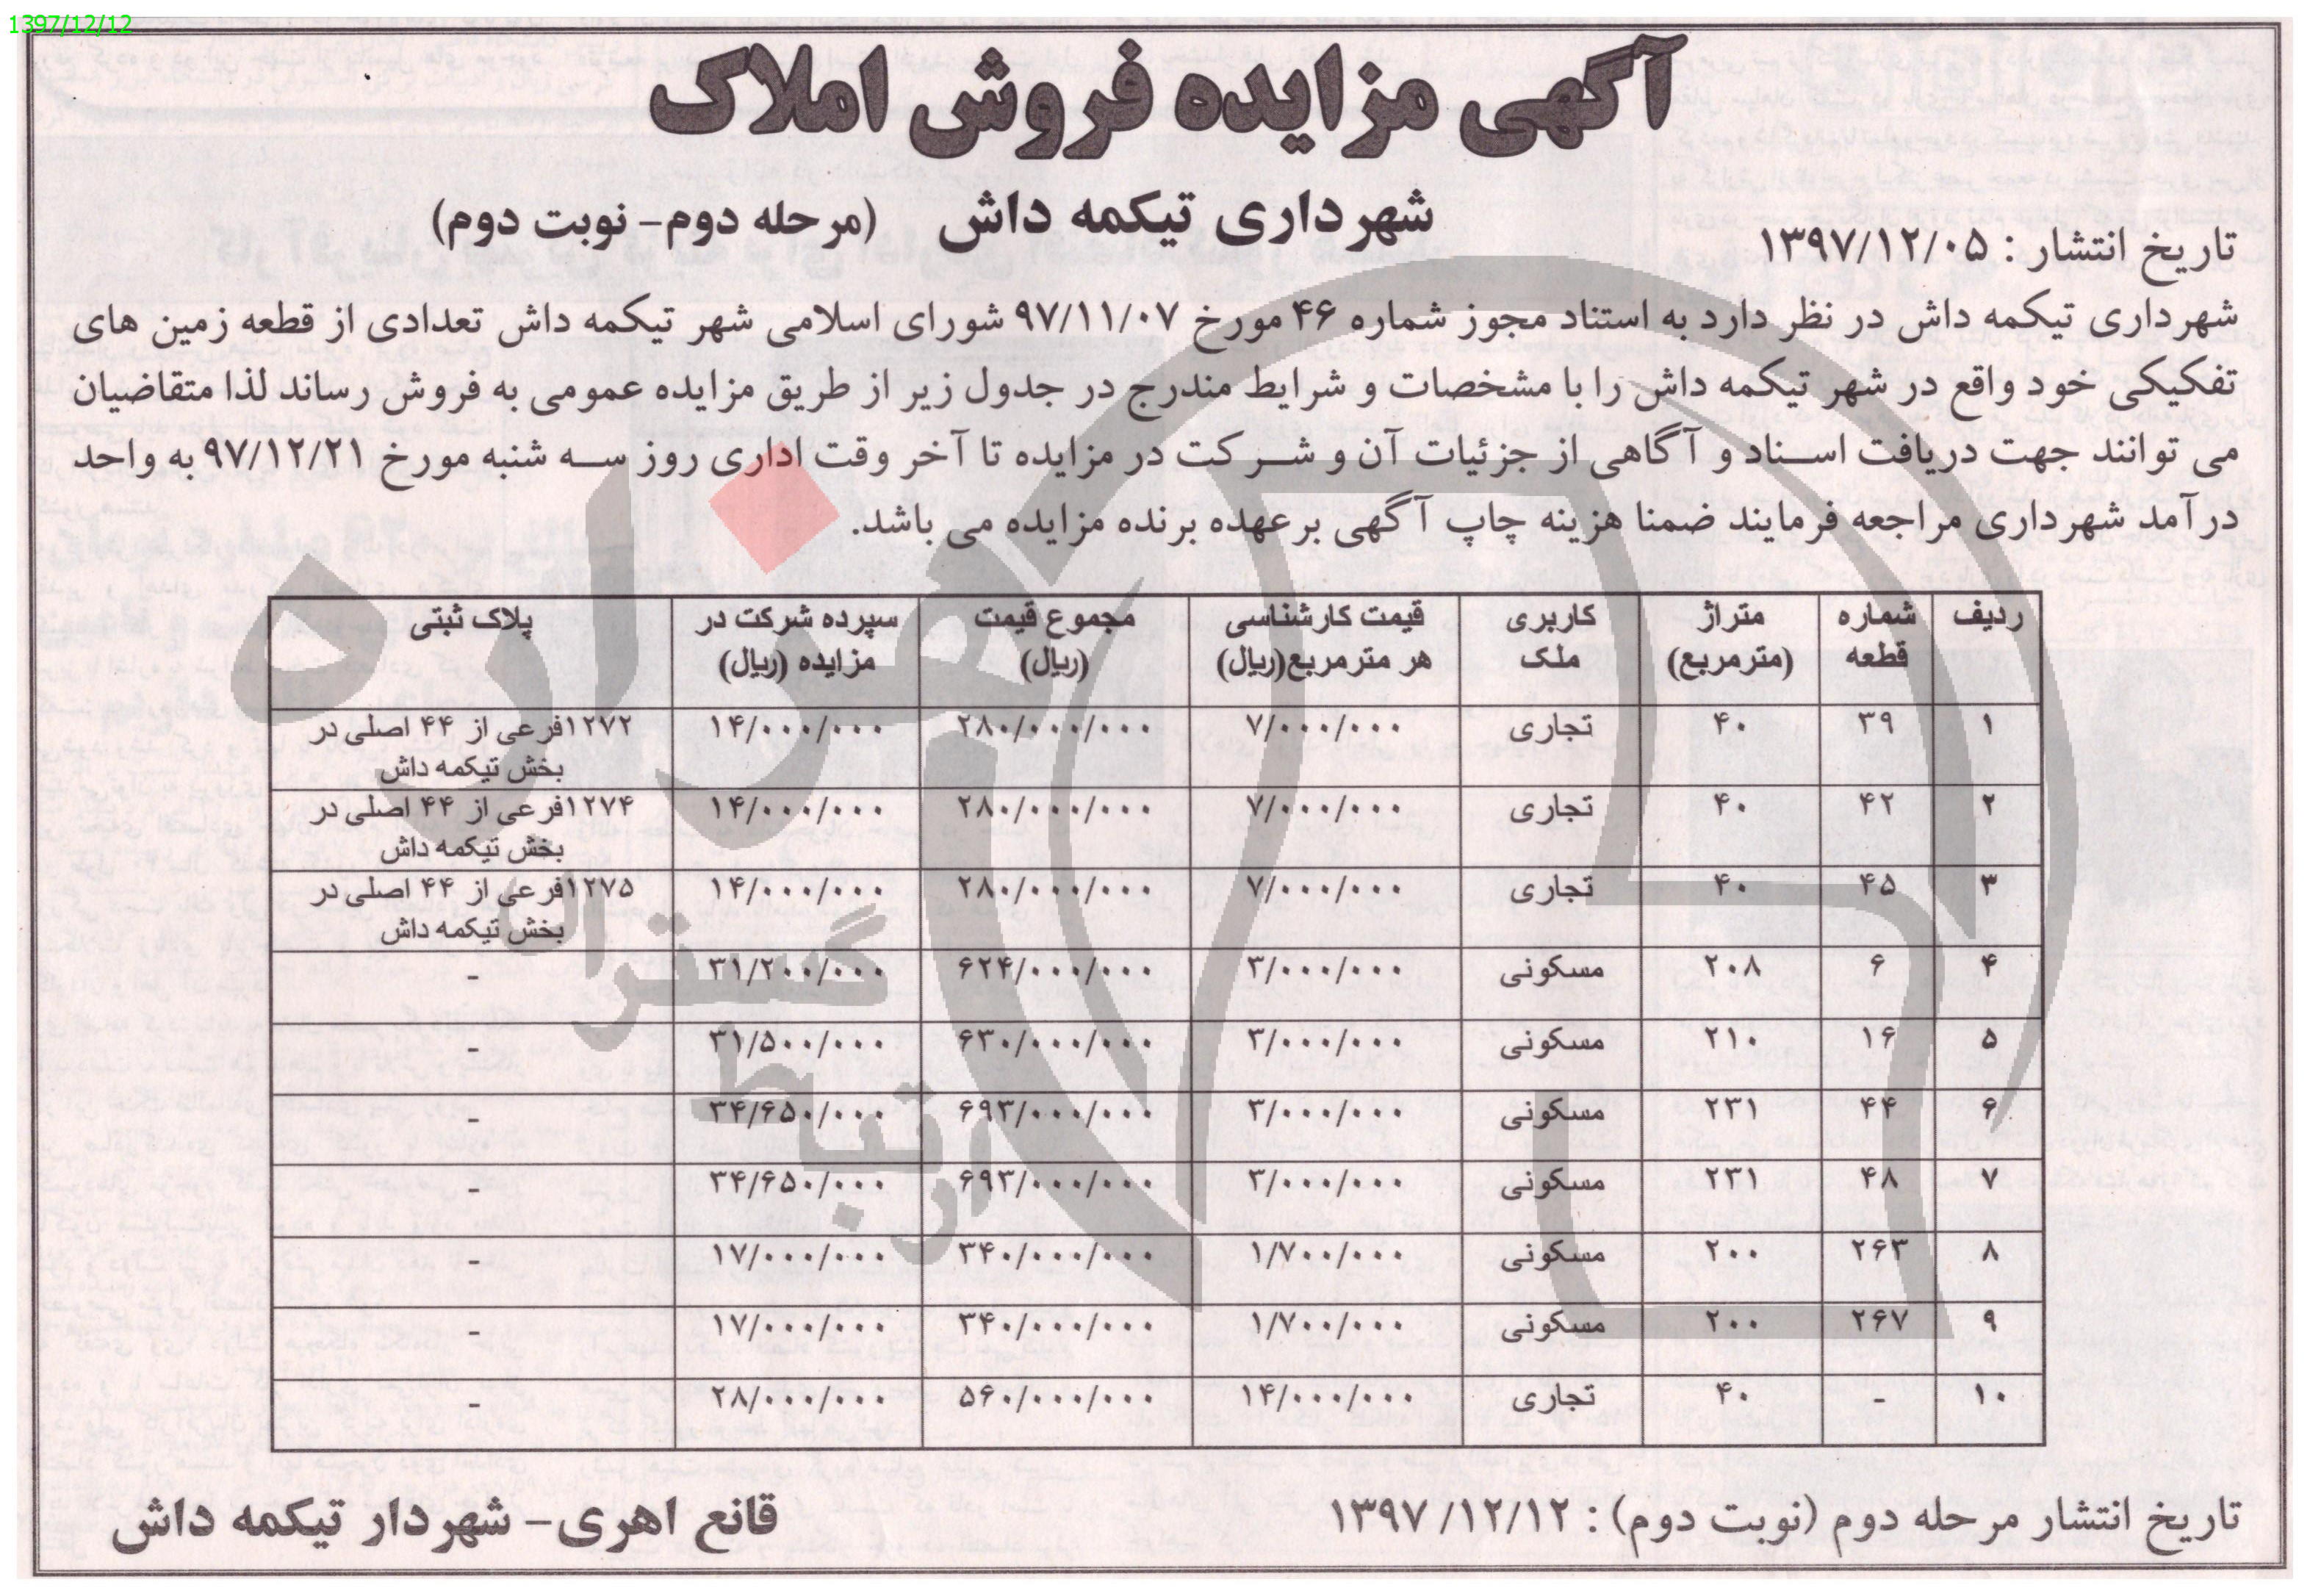 1397/12/12
آگهی مزایده فروش املاک
شهرداری تیکمه داش (مرحله دوم- نوبت دوم)
تاریخ انتشار : ۱۳۹۷/۱۲/۰۵
شهرداری تیکمه داش در نظر دارد به استناد مجوز شماره ۴۶ مورخ ۹۷/۱۱/۰۷ شورای اسلامی شهر تیکمه داش تعدادی از قطعه زمین های
تفکیکی خود واقع در شهر تیکمه داش را با مشخصات و شرایط مندرج در جدول زیر از طریق مزایده عمومی به فروش رساند لذا متقاضیان
می توانند جهت دریافت اسناد و آگاهی از جزئیات آن و شرکت در مزایده تا آخر وقت اداری روز سه شنبه مورخ ۹۷/۱۲/۲۱ به واحد
درآمد شهرداری مراجعه فرمایند ضمنا هزینه چاپ آگهی برعهده برنده مزایده می باشد.
ردیف شماره قطعه متراژ (مترمربع) کاربری ملک قیمت کارشناسی هر مترمربع(ریال) مجموع قیمت (ریال) سپرده شرکت در مزایده (ریال) پلاک ثبتی
۱ ۳۹ ۴۰ تجاری ۷/۰۰۰/۰۰۰ ۲۸۰/۰۰۰/۰۰۰ ۱۴/۰۰۰/۰۰۰ ۱۲۷۲فرعی از ۴۴ اصلی در بخش تیکمه داش
۲ ۴۲ ۴۰ تجاری ۷/۰۰۰/۰۰۰ ۲۸۰/۰۰۰/۰۰۰ ۱۴/۰۰۰/۰۰۰ ۱۲۷۴فرعی از ۴۴ اصلی در بخش تیکمه داش
۳ ۴۵ ۴۰ تجاری ۷/۰۰۰/۰۰۰ ۲۸۰/۰۰۰/۰۰۰ ۱۴/۰۰۰/۰۰۰ ۱۲۷۵فرعی از ۴۴ اصلی در بخش تیکمه داش
۴ ۶ ۲۰۸ مسکونی ۳/۰۰۰/۰۰۰ ۶۲۴/۰۰۰/۰۰۰ ۳۱/۲۰۰/۰۰۰ -
۵ ۱۶ ۲۱۰ مسکونی ۳/۰۰۰/۰۰۰ ۶۳۰/۰۰۰/۰۰۰ ۳۱/۵۰۰/۰۰۰ -
۶ ۴۴ ۲۳۱ مسکونی ۳/۰۰۰/۰۰۰ ۶۹۳/۰۰۰/۰۰۰ ۳۴/۶۵۰/۰۰۰ -
۷ ۴۸ ۲۳۱ مسکونی ۳/۰۰۰/۰۰۰ ۶۹۳/۰۰۰/۰۰۰ ۳۴/۶۵۰/۰۰۰ -
۸ ۲۶۳ ۲۰۰ مسکونی ۱/۷۰۰/۰۰۰ ۳۴۰/۰۰۰/۰۰۰ ۱۷/۰۰۰/۰۰۰ -
۹ ۲۶۷ ۲۰۰ مسکونی ۱/۷۰۰/۰۰۰ ۳۴۰/۰۰۰/۰۰۰ ۱۷/۰۰۰/۰۰۰ -
۱۰ - ۴۰ تجاری ۱۴/۰۰۰/۰۰۰ ۵۶۰/۰۰۰/۰۰۰ ۲۸/۰۰۰/۰۰۰ -
تاریخ انتشار مرحله دوم (نوبت دوم) : ۱۳۹۷/۱۲/۱۲
قانع اهری- شهردار تیکمه داش
هزاره
گستران
ارتباط